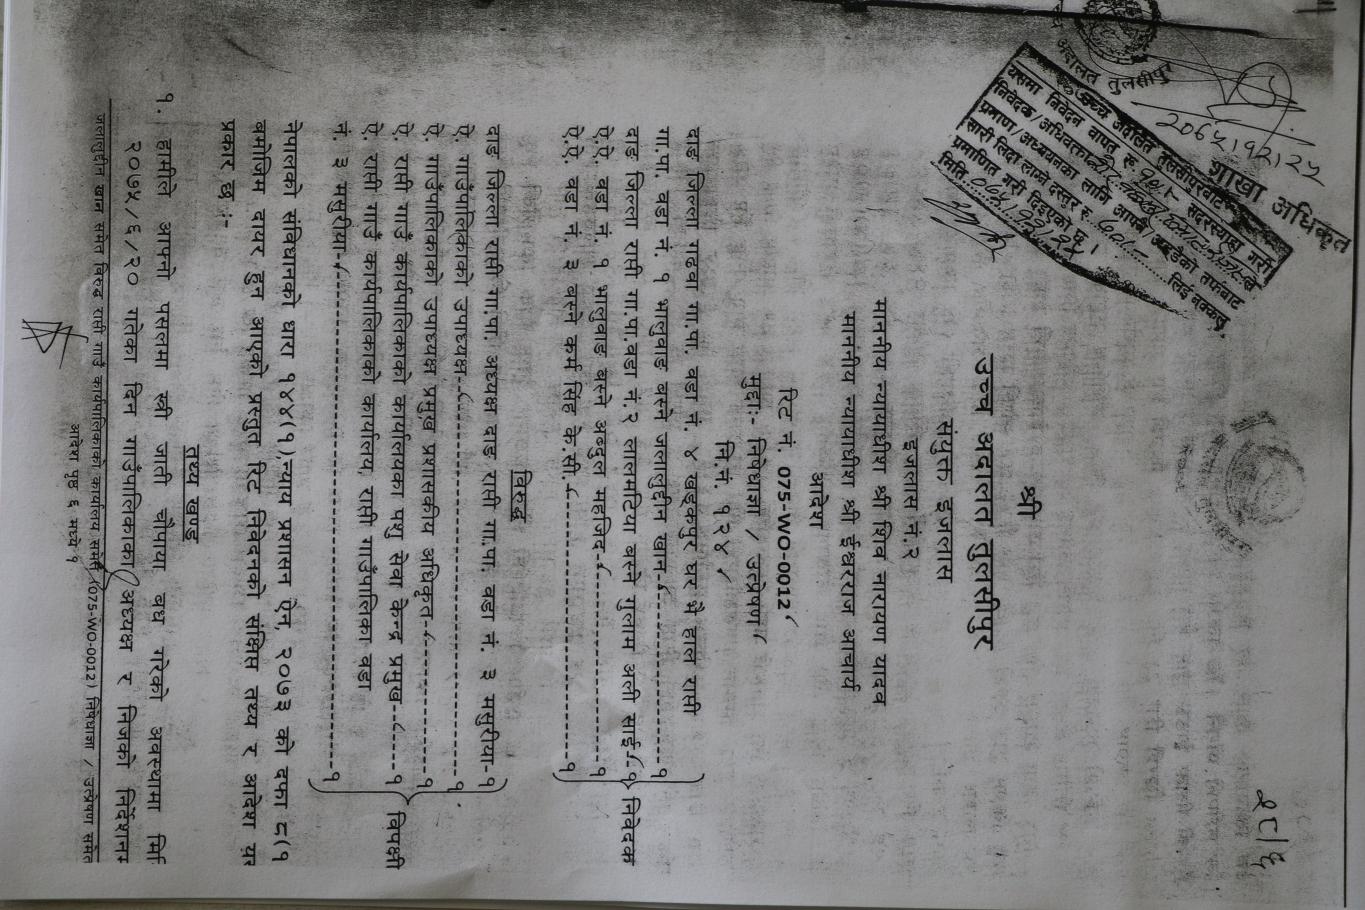 २८।६
अदालत तुलसीपुर
2065।12।25
शाखा अधिकृत
उच्च अदालत तुलसीपुरबाट
यसमा निवेदन वापत रु. सदरस्याहा गरी
निवेदक/अधिवक्ता ले
प्रमाण/अध्ययनका लागि आफ्नै अड्डैको तर्फबाट
सारी लिदा लाग्ने दस्तुर रु. लिई नक्कल
प्रमाणित गरी दिइएको छ ।
मिति
श्री
उच्च अदालत तुलसीपुर
संयुक्त इजलास
इजलास नं.२
माननीय न्यायाधीश श्री शिव नारायण यादव
माननीय न्यायाधीश श्री ईश्वरराज आचार्य
आदेश
रिट नं. 075-WO-0012
मुद्दाः- निषेधाज्ञा / उत्प्रेषण
नि.नं. १२४
दाङ जिल्ला गढवा गा.पा. वडा नं. ४ खड्कपुर घर भै हाल राप्ती
गा.पा. वडा नं. १ भालुवाङ बस्ने जलालुद्दीन खान-----------------१
दाङ जिल्ला राप्ती गा.पा.वडा नं.२ लालमटिया बस्ने गुलाम अली साई--१ निवेदक
ऐ.ऐ. वडा नं. १ भालुवाङ बस्ने अब्दुल महजिद-----------------१
ऐ.ऐ. वडा नं. ३ बस्ने कर्म सिंह के.सी.-----------------१
विरुद्ध
दाङ जिल्ला राप्ती गा.पा. अध्यक्ष दाङ राप्ती गा.पा. वडा नं. ३ मसुरीया-१
ऐ. गाउँपालिकाको उपाध्यक्ष-----------------१
ऐ. गाउँपालिकाको उपाध्यक्ष प्रमुख प्रशासकीय अधिकृत-----------------१
ऐ. राप्ती गाउँ कार्यपालिकाको कार्यालयका पशु सेवा केन्द्र प्रमुख-------१ विपक्षी
ऐ. राप्ती गाउँ कार्यपालिकाको कार्यालय, राप्ती गाउँपालिका वडा
नं. ३ मसुरीया-----------------१
नेपालको संविधानको धारा १४४(१),न्याय प्रशासन ऐन, २०७३ को दफा ८(१
बमोजिम दायर हुन आएको प्रस्तुत रिट निवेदनको संक्षिप्त तथ्य र आदेश यस
प्रकार छ :-
तथ्य खण्ड
१. हामीले आफ्नो पसलमा स्त्री जाती चौपाया बध गरेको अवस्थामा मिति
२०७५/६/२० गतेका दिन गाउँपालिकाका अध्यक्ष र निजको निर्देशनम
जलालुद्दीन खान समेत विरुद्ध राप्ती गाउँ कार्यपालिकाको कार्यालय समेत (075-WO-0012) निषेधाज्ञा / उत्प्रेषण समेत
आदेश पृष्ठ ६ मध्ये १